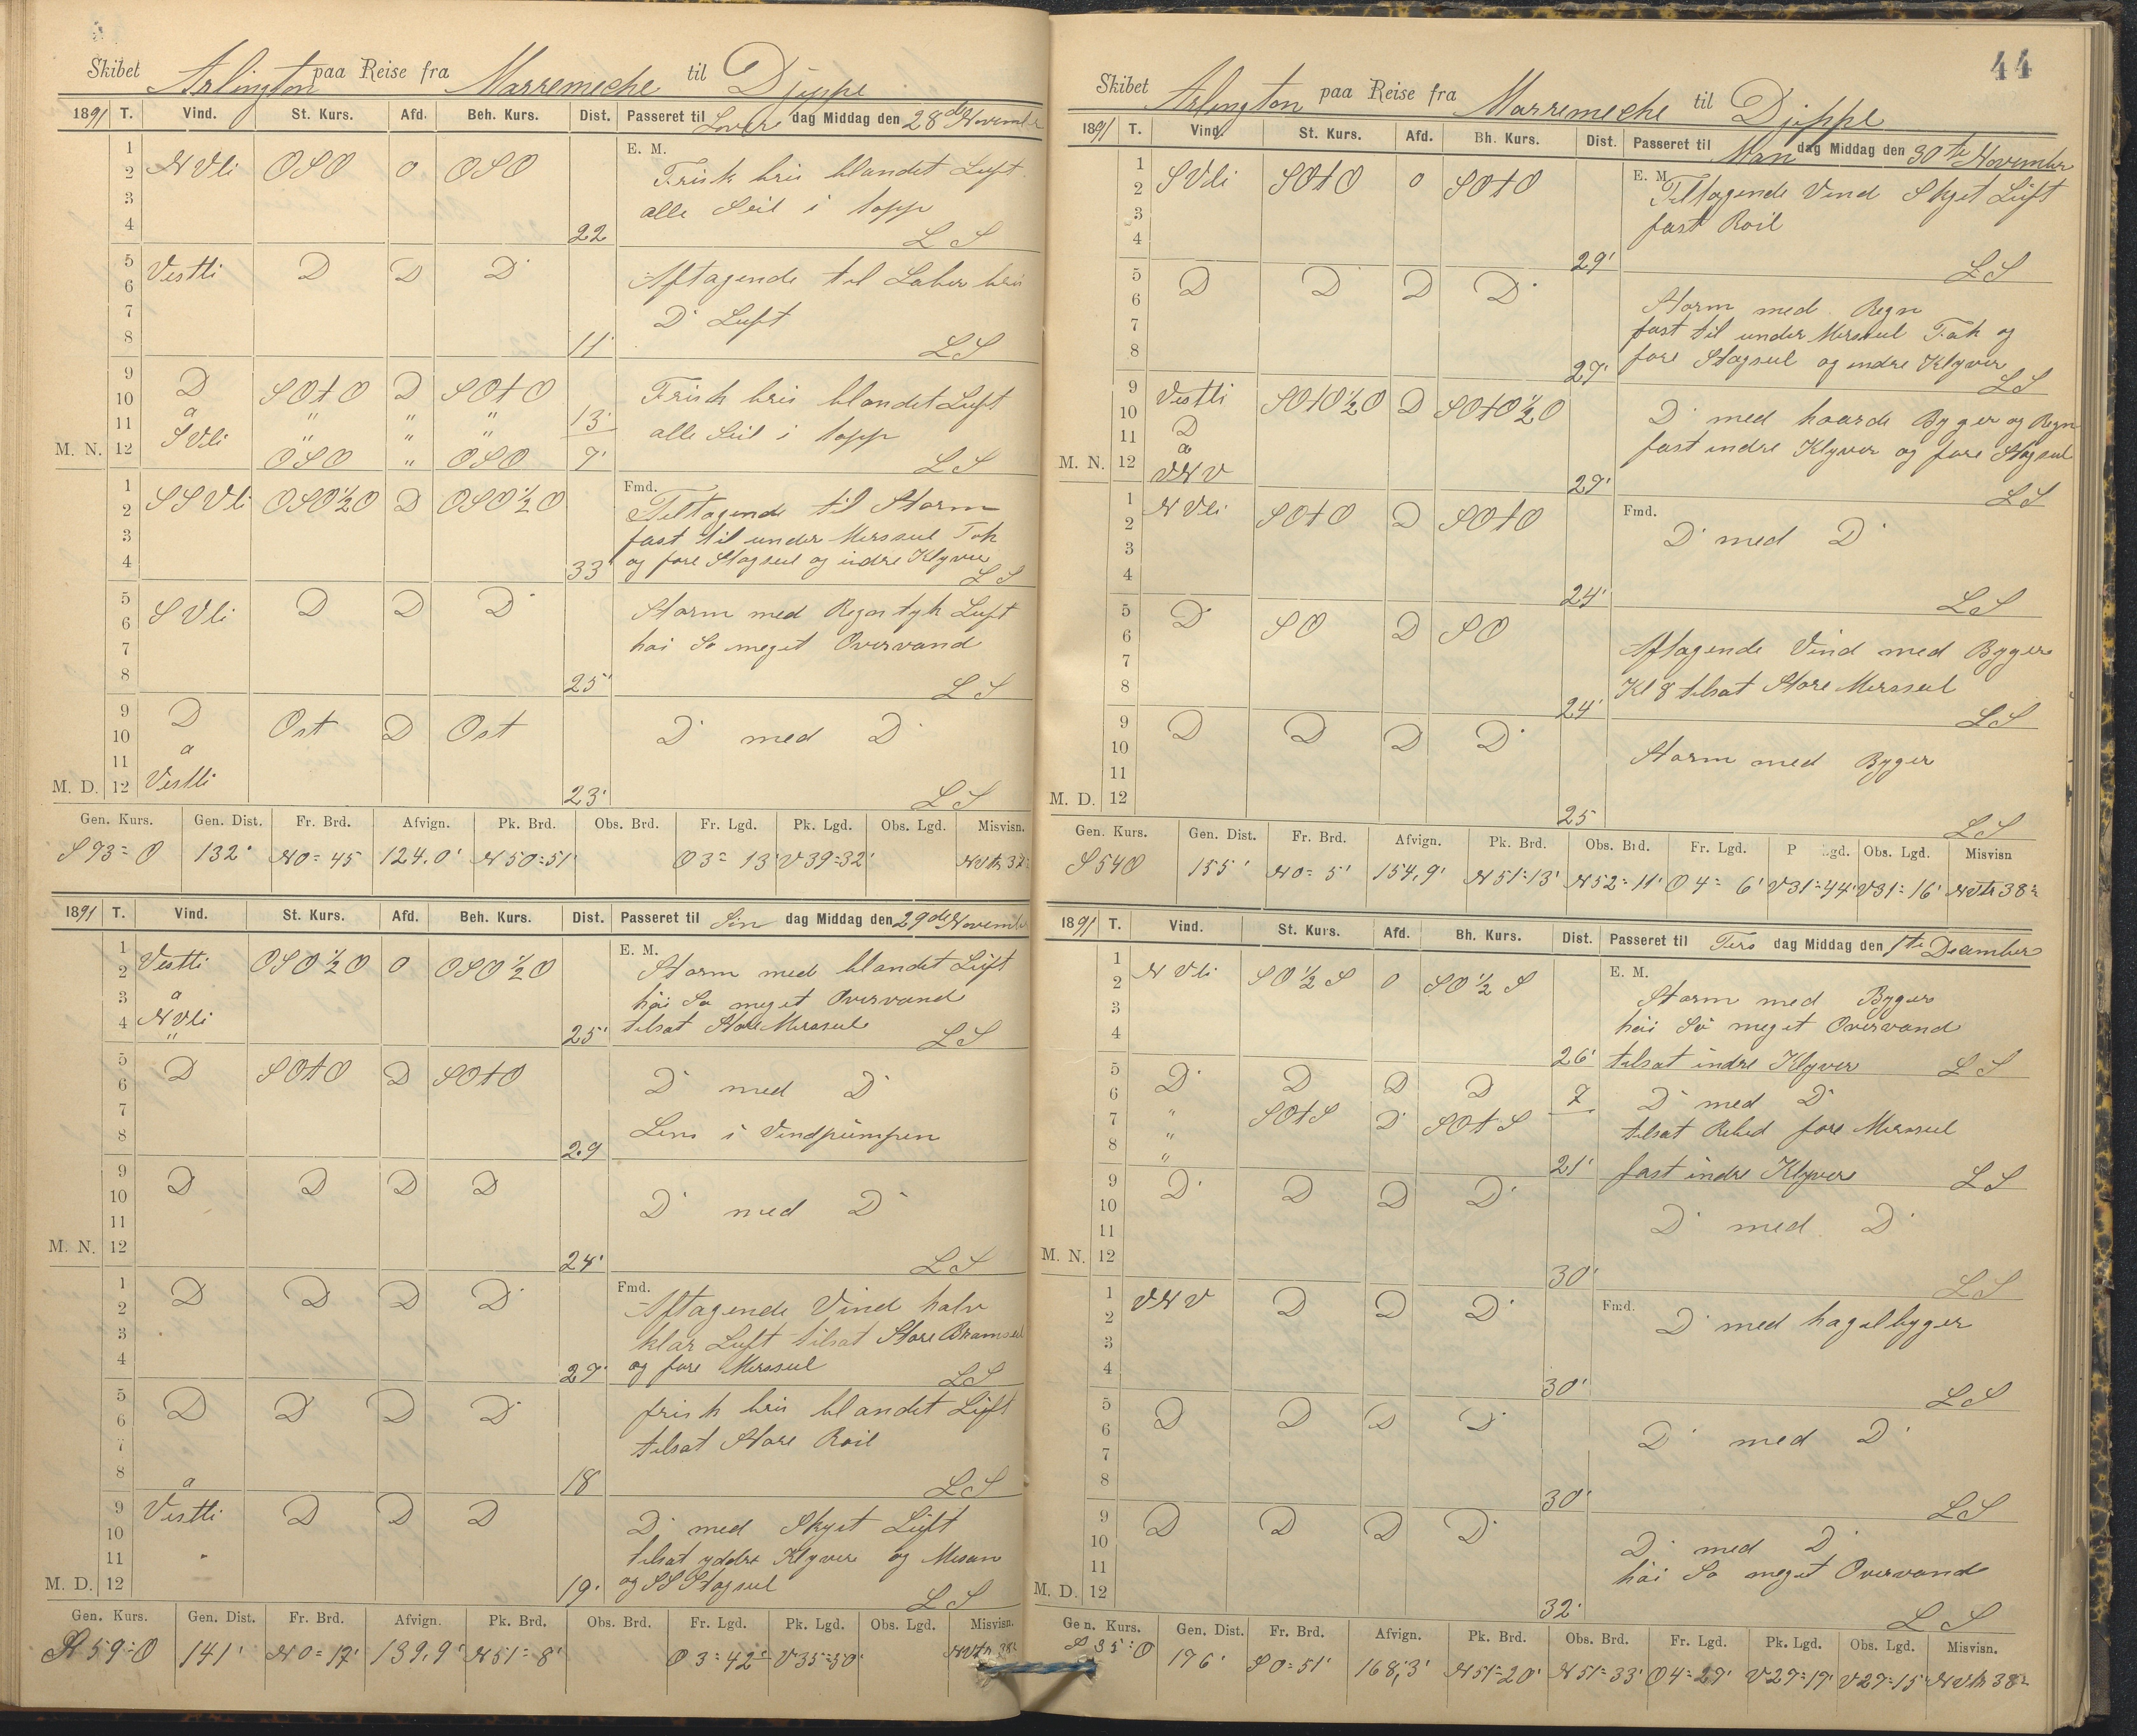 Skibet Arlington paa Reise fra Marremeche til Djeppe
1891 T. Vind. St. Kurs. Afd. Beh. Kurs. Dist. Passeret til Lover dag Middag den 28de November
1 E. M.
2 NVli OSO 0 OSO Frisk bris blandet Luft
3 alle Seil i topp
4 22 LS
5 Vestli D D D Aftagende til Laber bris
6
7 D Luft
8 11' LS
9 D SOtO D SOtO Frisk bris blandet Luft
10 a " " " 13' alle Seil i topp
11 SVli " " "
M. N. 12 OSO " OSO 7' LS
1 Fmd.
2 SSVli OSO½O D OSO½O Tiltagende til Storm
3 fast til under Mersseil Fok
4 33' og fore Stagseil og indre Klyver LS
5 SVli D D D Storm med Regn tyk Luft
6
7 hai So meget Overvand
8 25' LS
9 D Ost D Ost D med D
10 a
11 Vestli
M. D. 12 23' LS
Gen. Kurs. Gen. Dist. Fr. Brd. Afvign. Pk. Brd. Obs. Brd. Fr. Lgd. Pk. Lgd. Obs. Lgd. Misvisn.
S 93° O 132' N 0° 45 124,0' N 50° 51' O 3° 13' V 39° 32'
1891 T. Vind. St. Kurs. Afd. Beh. Kurs. Dist. Passeret til Søn dag Middag den 29de November
1 Vestli OSO½O 0 OSO½O E. M.
2 Storm med blandet Luft
3 a hai So meget Overvand
4 NVli " 25' tilsat Store Mersseil LS
5 D SOtO D SOtO D med D
6
7 Lens i Vindpumpen
8 29
9 D D D D
10 D med D
11
M. N. 12 24' LS
1 D D D D Fmd.
2 Aftagende Vind halv
3 klar Luft tilsat Store Bramseil
4 27' og fore Mersseil LS
5 D D D D frisk bris blandet Luft
6
7 tilsat Store Roil
8 a 18 LS
9 Vestli D D D D med Skyet Luft
10
11 tilsat yddre Klyver og Mesan
M. D. 12 19' og SS Stagseil LS
Gen. Kurs. Gen. Dist. Fr. Brd. Afvign. Pk. Brd. Obs. Brd. Fr. Lgd. Pk. Lgd. Obs. Lgd. Misvisn.
59° O 141' N 0° 17' 139,9' N 51° 8' O 3° 42' V 35° 50'
44
Skibet Arlington paa Reise fra Marremeche til Djeppe
1891 T. Vind. St. Kurs. Afd. Bh. Kurs. Dist. Passeret til Man dag Middag den 30te November
1 E. M.
2 SVli SOtO 0 SOtO Tiltagende Vind Skyet Luft
3 fast Roil
4 29' LS
5 D D D D
6 Storm med Regn
7 fast til under Mersseil Fok og
8 27' fore Stagseil og indre Klyver LS
9 Vestli SOtO½O D SOtO½O D med haarde Byger og Regn
10 D
11 a fast indre Klyver og fore Stagseil
M. N. 12 VNV 27' LS
1 NVli SOtO D SOtO Fmd.
2 D med D
3
4 24' LS
5 D SO D SO
6 Aftagende Vind med Byger
7 Kl 8 tilsat Store Mersseil
8 24' LS
9 D D D D
10 Storm med Byger
11
M. D. 12 25 LS
Gen. Kurs. Gen. Dist. Fr. Brd. Afvign. Pk. Brd. Obs. Brd. Fr. Lgd. P gd. Obs. Lgd. Misvisn
S 54 O 155' N 0° 5' 154,9' N 51° 13' N 52° 11' O 4° 6' V 31° 44' V 31° 16' NVtn 38°
1891 T. Vind. St. Kurs. Afd. Bh. Kurs. Dist. Passeret til Tirs dag Middag den 1te December
1 E. M.
2 NVli SO½S 0 SO½S Storm med Byger
3 hai Sö meget Overvand
4 26' tilsat indre Klyver LS
5 D D D D 7 D med D
6 " SOtS D SOtS tilsat Rebed fore Mersseil
7 "
8 " 21' fast indre Klyver LS
9 D D D D
10 D med D
11
M. N. 12 30' LS
1 VNV D D D Fmd.
2 D med hagelbyger
3
4 30' LS
5 D D D D
6 D med D
7
8 30' LS
9 D D D D
10 D med D
11 hai So meget Overvand
M. D. 12 32' LS
Gen. Kurs. Gen. Dist. Fr. Brd. Afvign. Pk. Brd. Obs. Brd. Fr. Lgd. Pk. Lgd. Obs. Lgd. Misvisn.
S 35° O 176' S 0° 51' 168,3' N 51° 20' N 51° 33' O 4° 27' V 27° 17' V 27° 15' NVtn 38°